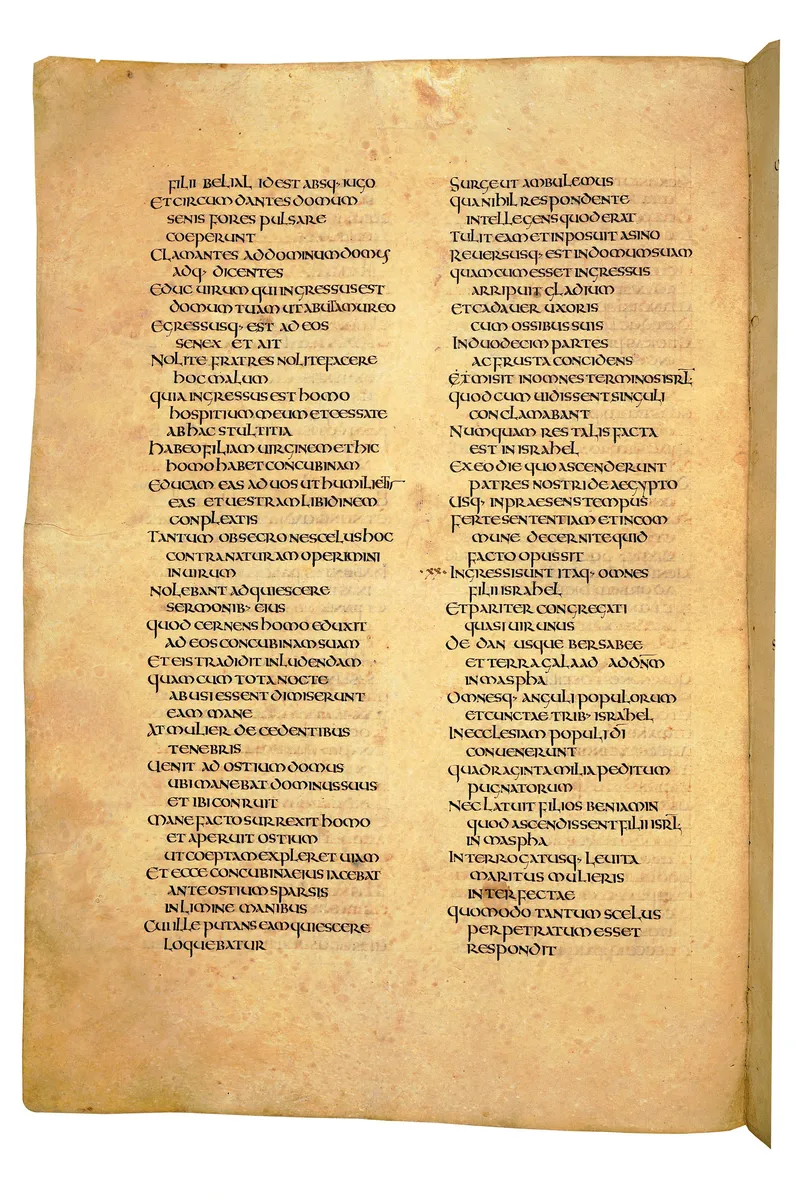 FILII BELIAL IDEST ABSQ· IUGO
ETCIRCUMDANTES DOMUM
SENIS FORES PULSARE
COEPERUNT
CLAMANTES ADDOMINUMDOMUS
ADQ· DICENTES
EDUC UIRUM QUIINGRESSUSEST
DOMUMTUAM UTABUTAMUREO
EGRESSUSQ· EST AD EOS
SENEX ET AIT
NOLITE FRATRES NOLITEFACERE
HOCMALUM
QUIA INGRESSUSEST HOMO
HOSPITIUMMEUM ETCESSATE
ABHAC STULTITIA
HABEOFILIAM UIRGINEM ET HIC
HOMOHABETCONCUBINAM
EDUCAM EAS AD UOS UTHUMILIETIS
EAS ETUESTRAM LIBIDINEM
CONPLEATIS
TANTUM OBSECRO NESCELUSHOC
CONTRANATURAM OPERIMINI
INUIRUM
NOLEBANT ADQUIESCERE
SERMONIB· EIUS
QUOD CERNENS HOMO EDUXIT
AD EOS CONCUBINAMSUAM
ET EIS TRADIDIT INLUDENDAM
QUAM CUM TOTA NOCTE
ABUSIESSENT DIMISERUNT
EAM MANE
AT MULIER DECEDENTIBUS
TENEBRIS
UENIT AD OSTIUMDOMUS
UBIMANEBAT DOMINUSSUUS
ET IBI CONRUIT
MANEFACTO SURREXIT HOMO
ET APERUIT OSTIUM
UTCOEPTAMEXPLERET UIAM
ET ECCE CONCUBINAEIUS IACEBAT
ANTEOSTIUMSPARSIS
INLIMINE MANIBUS
CUIILLE PUTANS EAMQUIESCERE
LOQUEBATUR
SURGE UT AMBULEMUS
QUANIHIL RESPONDENTE
INTELLEGENSQUODERAT
TULIT EAM ETINPOSUIT ASINO
REUERSUSQ· ESTINDOMUMSUAM
QUAMCUMESSET INGRESSUS
ARRIPUIT GLADIUM
ETCADAUER UXORIS
CUM OSSIBUSSUIS
INDUODECIM PARTES
ACFRUSTACONCIDENS
ET MISIT INOMNESTERMINOSISRL̅
QUODCUM UIDISSENTSINGULI
CONCLAMABANT
NUMQUAM RES TALIS FACTA
EST INISRAHEL
EXEODIE QUOASCENDERUNT
PATRES NOSTRIDEAEGYPTO
USQ· INPRAESENSTEMPUS
FERTESENTENTIAM ETINCOM
MUNE DECERNITEQUID
FACTOOPUSSIT
·XX· INGRESSISUNT ITAQ· OMNES
FILIIISRAHEL
ETPARITER CONGREGATI
QUASIUIRUNUS
DE DAN USQUE BERSABEE
ETTERRAGALAAD ADDN̅M
INMASPHA
OMNESQ· ANGULI POPULORUM
ETCUNCTAE TRIB· ISRAHEL
INECCLESIAM POPULI D̅I
CONUENERUNT
QUADRAGINTAMILIAPEDITUM
PUGNATORUM
NEC LATUIT FILIOS BENIAMIN
QUODASCENDISSENTFILIIISRL̅
INMASPHA
INTERROGATUSQ· LEUITA
MARITUS MULIERIS
INTERFECTAE
QUOMODO TANTUM SCELUS
PERPETRATUMESSET
RESPONDIT